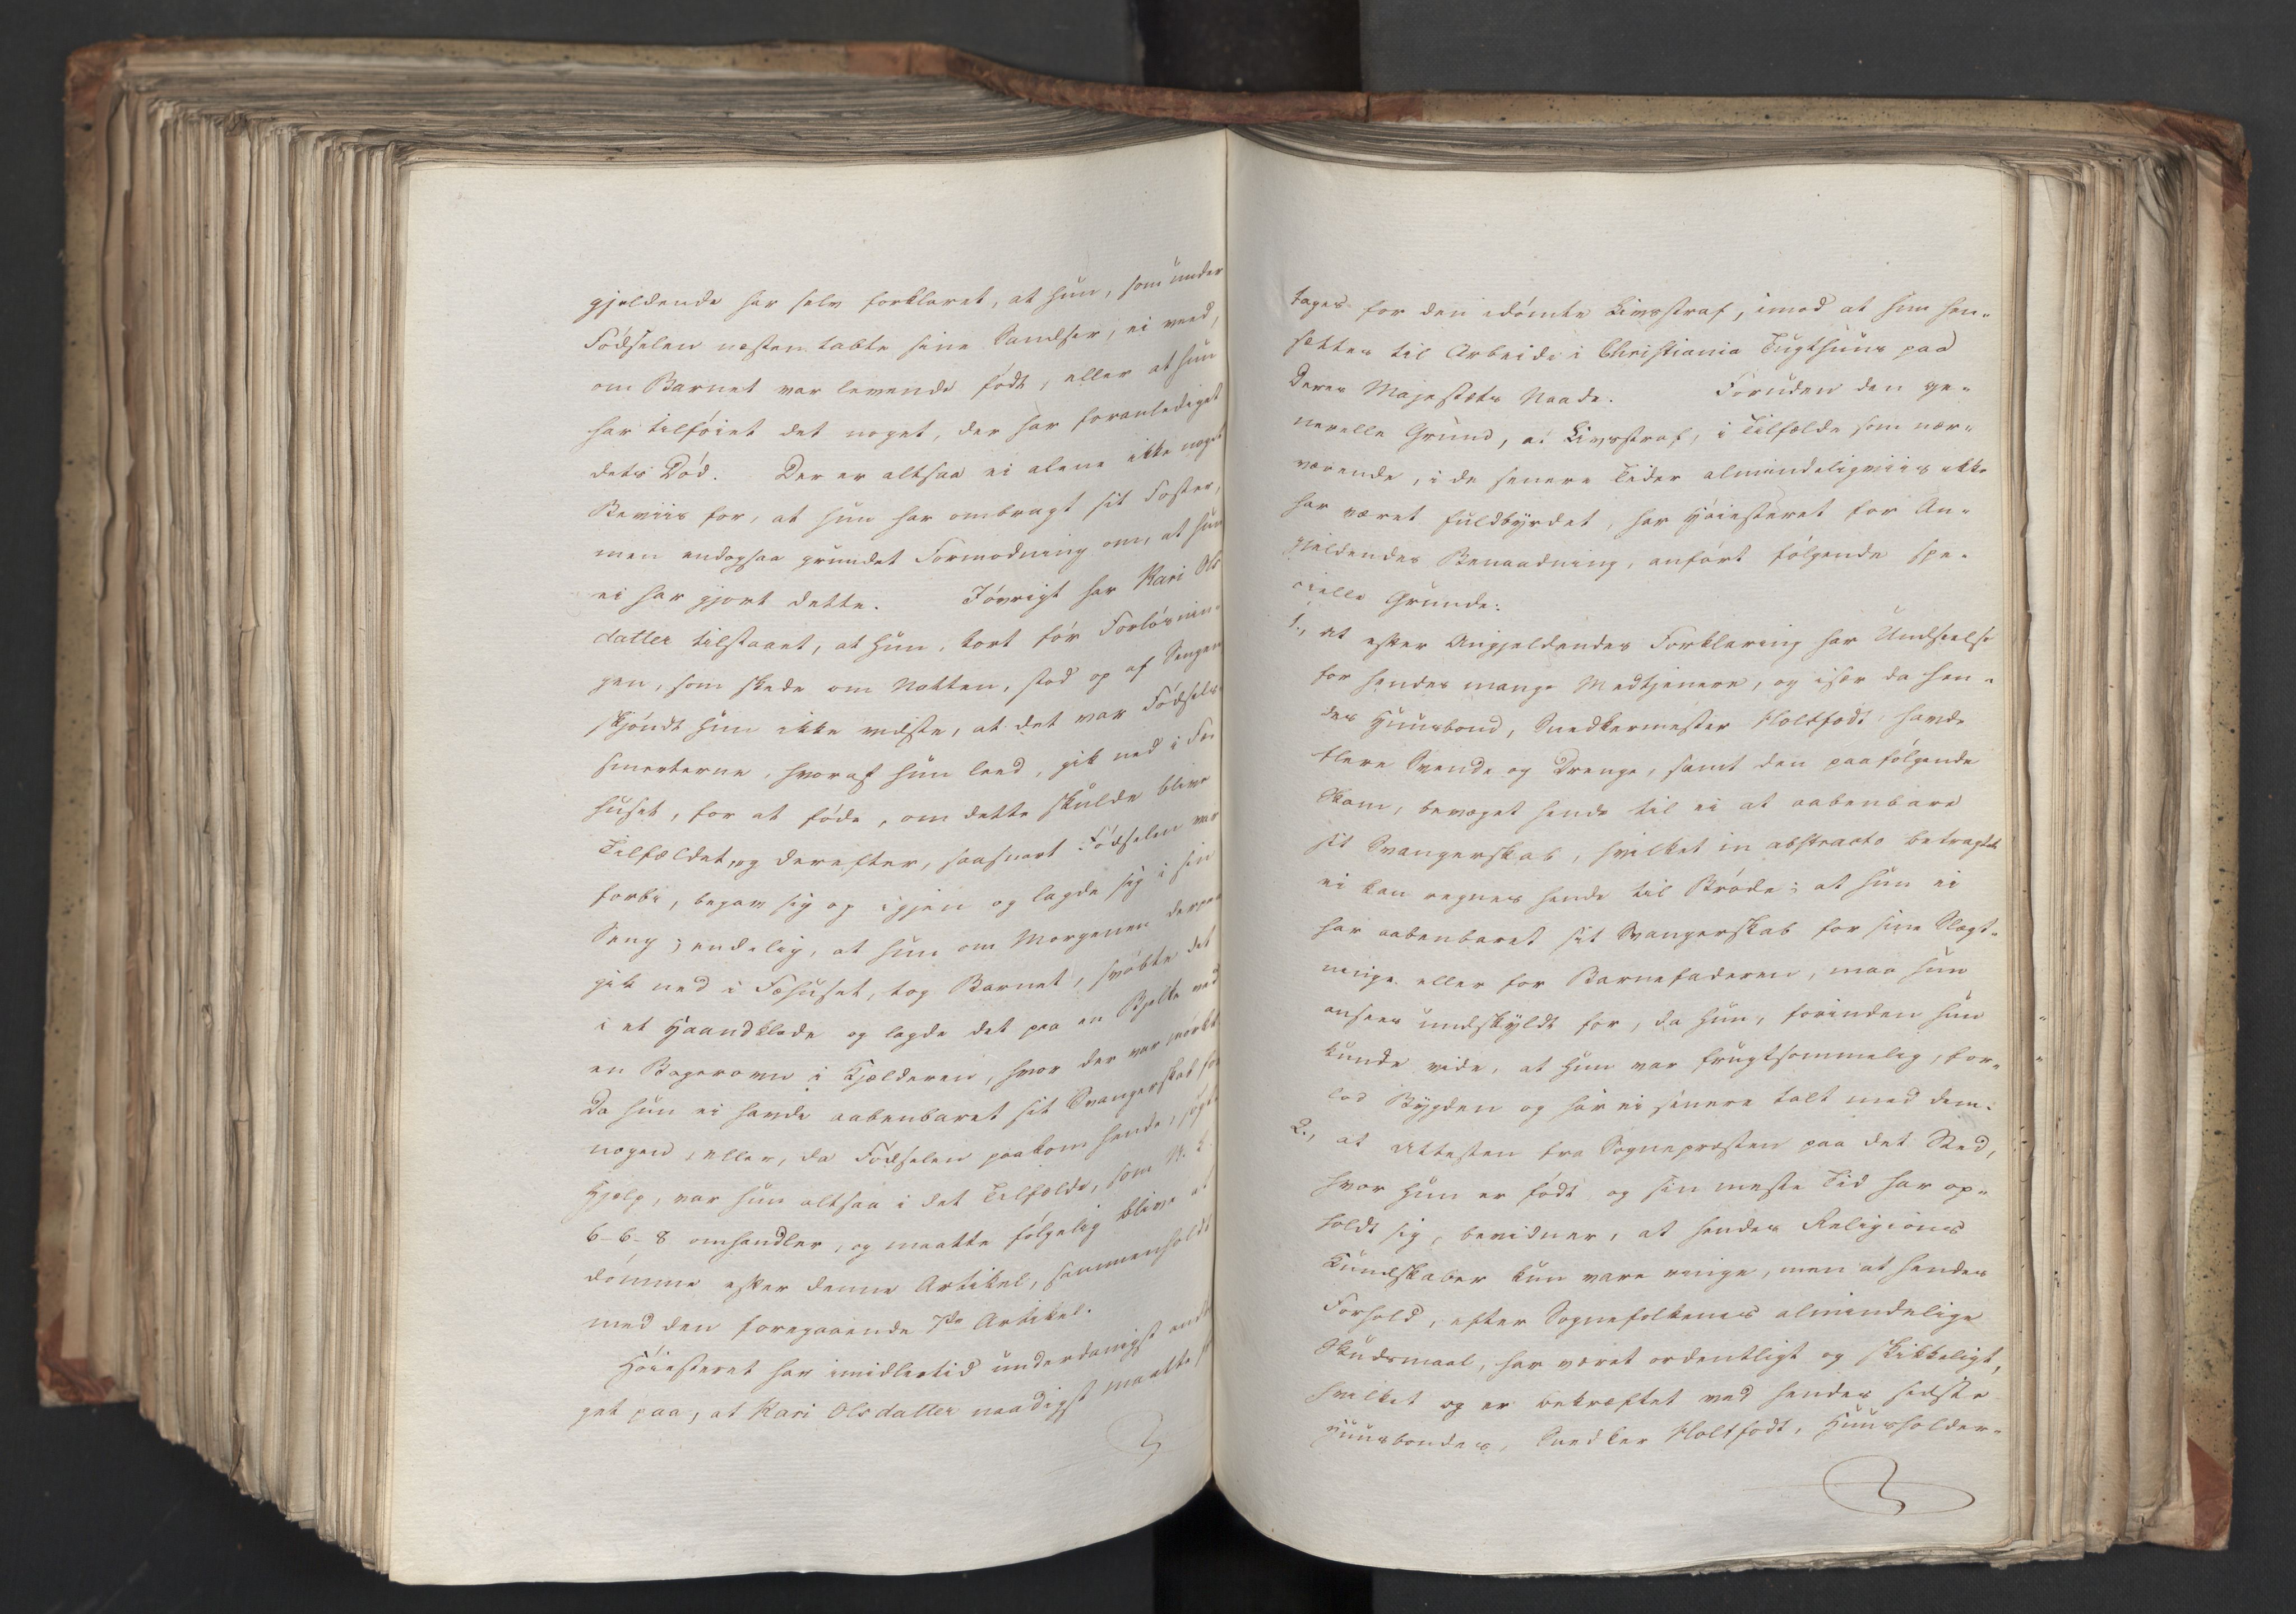 gjeldende har selv forklaret, at hun, som under
Fødselen næsten tabte sine Sandser, ei veed,
om Barnet var levende født, eller at hun
har tilføiet det noget, der har foranlediget
dets Død. Der er altsaa ei alene ikke noget
Beviis for, at hun har ombragt sit Foster,
men endogsaa grundet Formodning om, at hun
ei har gjort dette. Iøvrigt har Kari Ols
datter tilstaaet, at hun, kort før Forløsnin-
gen, som skede om Natten, stod op af Sengen
skjøndt hun ikke vidste, at det var Fødsels-
smerterne, hvoraf hun leed, gik ned i Fæ
huset, for at føde, om dette skulde blive
Tilfældet, og derefter, saasnart Fødselen var
forbi, begav sig op igjen og lagde sig i sin
Seng; endelig, at hun om Morgenen derpaa
gik ned i Fæhuset, tog Barnet, svøbte det
i et Haandklæde og lagde det paa en Bjelke ved
en Bagerovn i Kjælderen, hvor der var mørkt
Da hun ei havde aabenbaret sit Svangerskab for
nogen, eller, da Fødselen paakom hende, søgt
Hjelp, var hun altsaa i det Tilfælde, som N. L.
6-6-8 omhandler, og maatte følgelig blive at
dømme efter denne Artikel, sammenholdt
med den foregaaende 7de Artikel.
Høiesteret har imidlertid underdanigst andra
get paa, at Kari Olsdatter naadigst maatte fri
tages for den idømte Livsstraf, imod at hun hen-
sættes til Arbeide i Christiania Tugthuus paa
Deres Majestæts Naade. Foruden den ge-
nerelle Grund, at Livsstraf, i Tilfælde som nær-
værende, i de senere Tider almindeligviis ikke
har været fuldbyrdet, har Høiesteret for An-
gjeldendes Benaadning, anført følgende spe-
cielle Grunde:
1., at efter Angjeldendes Forklaring har Undseelse
for hendes mange Medtjenere, og især da hen-
des Huusbond, Snedkermester Holtfodt, havde
flere Svende og Drenge, samt den paafølgende
Skam, bevæget hende til ei at aabenbare
sit Svangerskab, hvilket in abstracto betragtet
ei kan regnes hende til Brøde; at hun ei
har aabenbaret sit Svangerskab for sine Slægt-
ninge eller for Barnefaderen, maa hun
ansees undskyldt for, da hun, forinden hun
kunde vide, at hun var frugtsommelig, for-
lod Bygden og har ei senere talt med dem.
2., at Attesten fra Sognepræsten paa det Sted,
hvor hun er født og sin meste Tid har op-
holdt sig, bevidner, at hendes Religions
Kundskaber kun vare ringe, men at hendes
Forhold, efter Sognefolkenes almindelige
Skudsmaal, har været ordentligt og skikkeligt,
hvilket og er bekræftet ved hendes sidste
Huusbondes, Snedker Holtfodt, Huusholder-